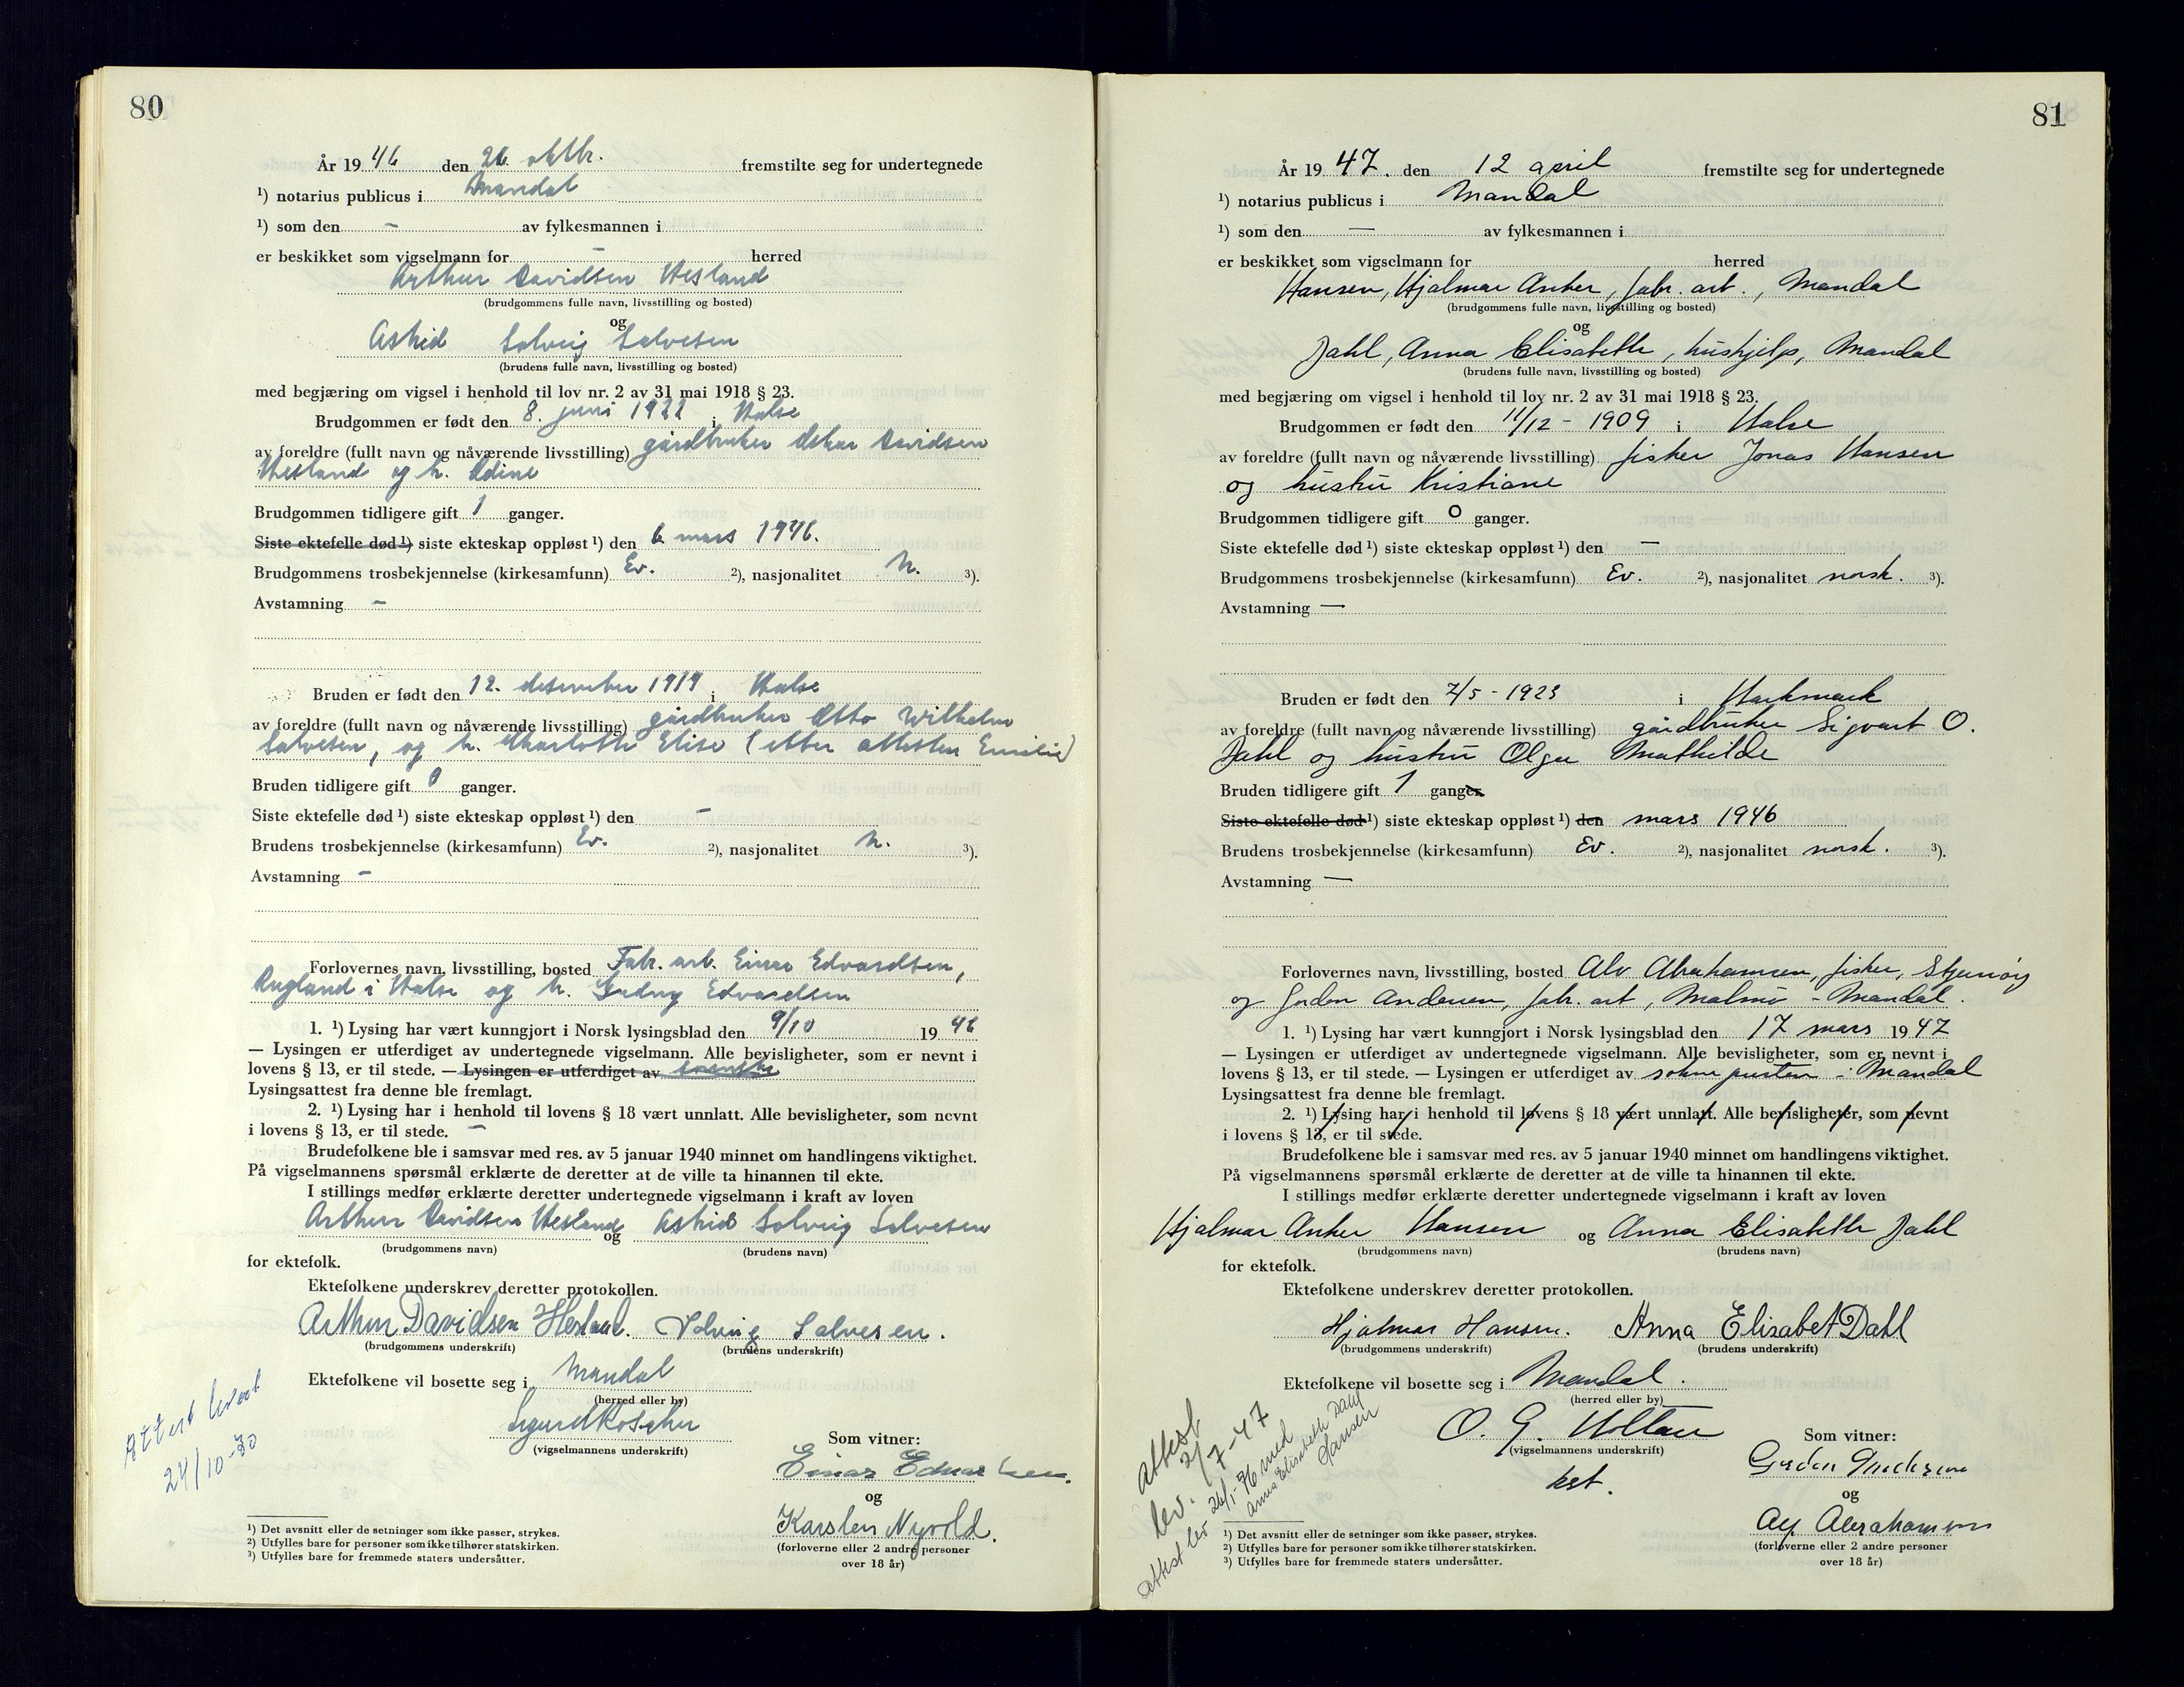 80
År 19 46 den 26. oktbr. fremstilte seg for undertegnede
¹) notarius publicus i Mandal
¹) som den - av fylkesmannen i
er beskikket som vigselmann for - herred
Arthur Davidsen Hesland
(brudgommens fulle navn, livsstilling og bosted)
og
Astrid Solveig Salvesen
(brudens fulle navn, livsstilling og bosted)
med begjæring om vigsel i henhold til lov nr. 2 av 31 mai 1918 § 23.
Brudgommen er født den 8. juni 1922 i Halse
av foreldre (fullt navn og nåværende livsstilling) gårdbruker Oskar Davidsen
Hesland og h. Edine
Brudgommen tidligere gift 1 ganger.
Siste ektefelle død ¹) siste ekteskap oppløst ¹) den 6. mars 1946.
Brudgommens trosbekjennelse (kirkesamfunn) Ev. ²), nasjonalitet N. ³).
Avstamning -
Bruden er født den 12. desember 1919 i Halse
av foreldre (fullt navn og nåværende livsstilling) gårdbruker Otto Wilhelm
Salvesen, og h. Charlotte Elise (etter attesten Emilie)
Bruden tidligere gift 0 ganger.
Siste ektefelle død ¹) siste ekteskap oppløst ¹) den -
Brudens trosbekjennelse (kirkesamfunn) Ev. ²), nasjonalitet N. ³).
Avstamning -
Forlovernes navn, livsstilling, bosted Fabr. arb. Einar Edvardsen,
i Halse og h. Gudny Edvardsen
1. ¹) Lysing har vært kunngjort i Norsk lysingsblad den 9/10 19 46
— Lysingen er utferdiget av undertegnede vigselmann. Alle bevisligheter, som er nevnt i
lovens § 13, er til stede. — Lysingen er utferdiget av
Lysingsattest fra denne ble fremlagt.
2. ¹) Lysing har i henhold til lovens § 18 vært unnlatt. Alle bevisligheter, som nevnt
i lovens § 13, er til stede. -
Brudefolkene ble i samsvar med res. av 5 januar 1940 minnet om handlingens viktighet.
På vigselmannens spørsmål erklærte de deretter at de ville ta hinannen til ekte.
I stillings medfør erklærte deretter undertegnede vigselmann i kraft av loven
Arthur Davidsen Hesland og Astrid Solveig Salvesen
(brudgommens navn) (brudens navn)
for ektefolk.
Ektefolkene underskrev deretter protokollen.
Arthur Davidsen Hesland. Solveig Salvesen.
(brudgommens underskrift) (brudens underskrift)
Ektefolkene vil bosette seg i Mandal
(herred eller by)
(vigselmannens underskrift)
Som vitner:
Einar Edvardsen.
og
Karsten Nyvold.
(forloverne eller 2 andre personer
over 18 år)
Attest levert
24/10-70
¹) Det avsnitt eller de setninger som ikke passer, strykes.
²) Utfylles bare for personer som ikke tilhører statskirken.
³) Utfylles bare for fremmede staters undersåtter.
81
År 19 47. den 12 april fremstilte seg for undertegnede
¹) notarius publicus i Mandal
¹) som den — av fylkesmannen i
er beskikket som vigselmann for herred
Hansen, Hjalmar Anker, fabr. arb., Mandal
(brudgommens fulle navn, livsstilling og bosted)
og
Dahl, Anna Elisabeth, hushjelp, Mandal
(brudens fulle navn, livsstilling og bosted)
med begjæring om vigsel i henhold til lov nr. 2 av 31 mai 1918 § 23.
Brudgommen er født den 11/12 - 1909 i Halse
av foreldre (fullt navn og nåværende livsstilling) fisker Jonas Hansen
og hustru Kristiane
Brudgommen tidligere gift 0 ganger.
Siste ektefelle død ¹) siste ekteskap oppløst ¹) den —
Brudgommens trosbekjennelse (kirkesamfunn) Ev. ²), nasjonalitet norsk. ³).
Avstamning —
Bruden er født den 7/5 - 1923 i Harkmark
av foreldre (fullt navn og nåværende livsstilling) gårdbruker Sigvart O.
Dahl og hustru Olga Mathilde
Bruden tidligere gift 1 ganger
Siste ektefelle død ¹) siste ekteskap oppløst ¹) den mars 1946
Brudens trosbekjennelse (kirkesamfunn) Ev. ²), nasjonalitet norsk. ³).
Avstamning —
Forlovernes navn, livsstilling, bosted Alv Abrahamsen, fisker, Skjernøy
og Gordon Andersen, fabr. arb, Malmø - Mandal.
1. ¹) Lysing har vært kunngjort i Norsk lysingsblad den 17 mars 19 47
— Lysingen er utferdiget av undertegnede vigselmann. Alle bevisligheter, som er nevnt i
lovens § 13, er til stede. — Lysingen er utferdiget av soknepresten i Mandal
Lysingsattest fra denne ble fremlagt.
2. ¹) Lysing har i henhold til lovens § 18 vært unnlatt. Alle bevisligheter, som nevnt
i lovens § 13, er til stede.
Brudefolkene ble i samsvar med res. av 5 januar 1940 minnet om handlingens viktighet.
På vigselmannens spørsmål erklærte de deretter at de ville ta hinannen til ekte.
I stillings medfør erklærte deretter undertegnede vigselmann i kraft av loven
Hjalmar Anker Hansen og Anna Elisabeth Dahl
(brudgommens navn) (brudens navn)
for ektefolk.
Ektefolkene underskrev deretter protokollen.
Hjalmar Hansen. Anna Elisabet Dahl
(brudgommens underskrift) (brudens underskrift)
Ektefolkene vil bosette seg i Mandal.
(herred eller by)
O. G. Holtan
(vigselmannens underskrift)
kst.
Som vitner:
Gordon Andersen
og
Alf Abrahamsen
(forloverne eller 2 andre personer
over 18 år)
attest
lev. 2/7-47
attest lev 26/1-76 med
Anna Elisabeth Dahl
Hansen
¹) Det avsnitt eller de setninger som ikke passer, strykes.
²) Utfylles bare for personer som ikke tilhører statskirken.
³) Utfylles bare for fremmede staters undersåtter.